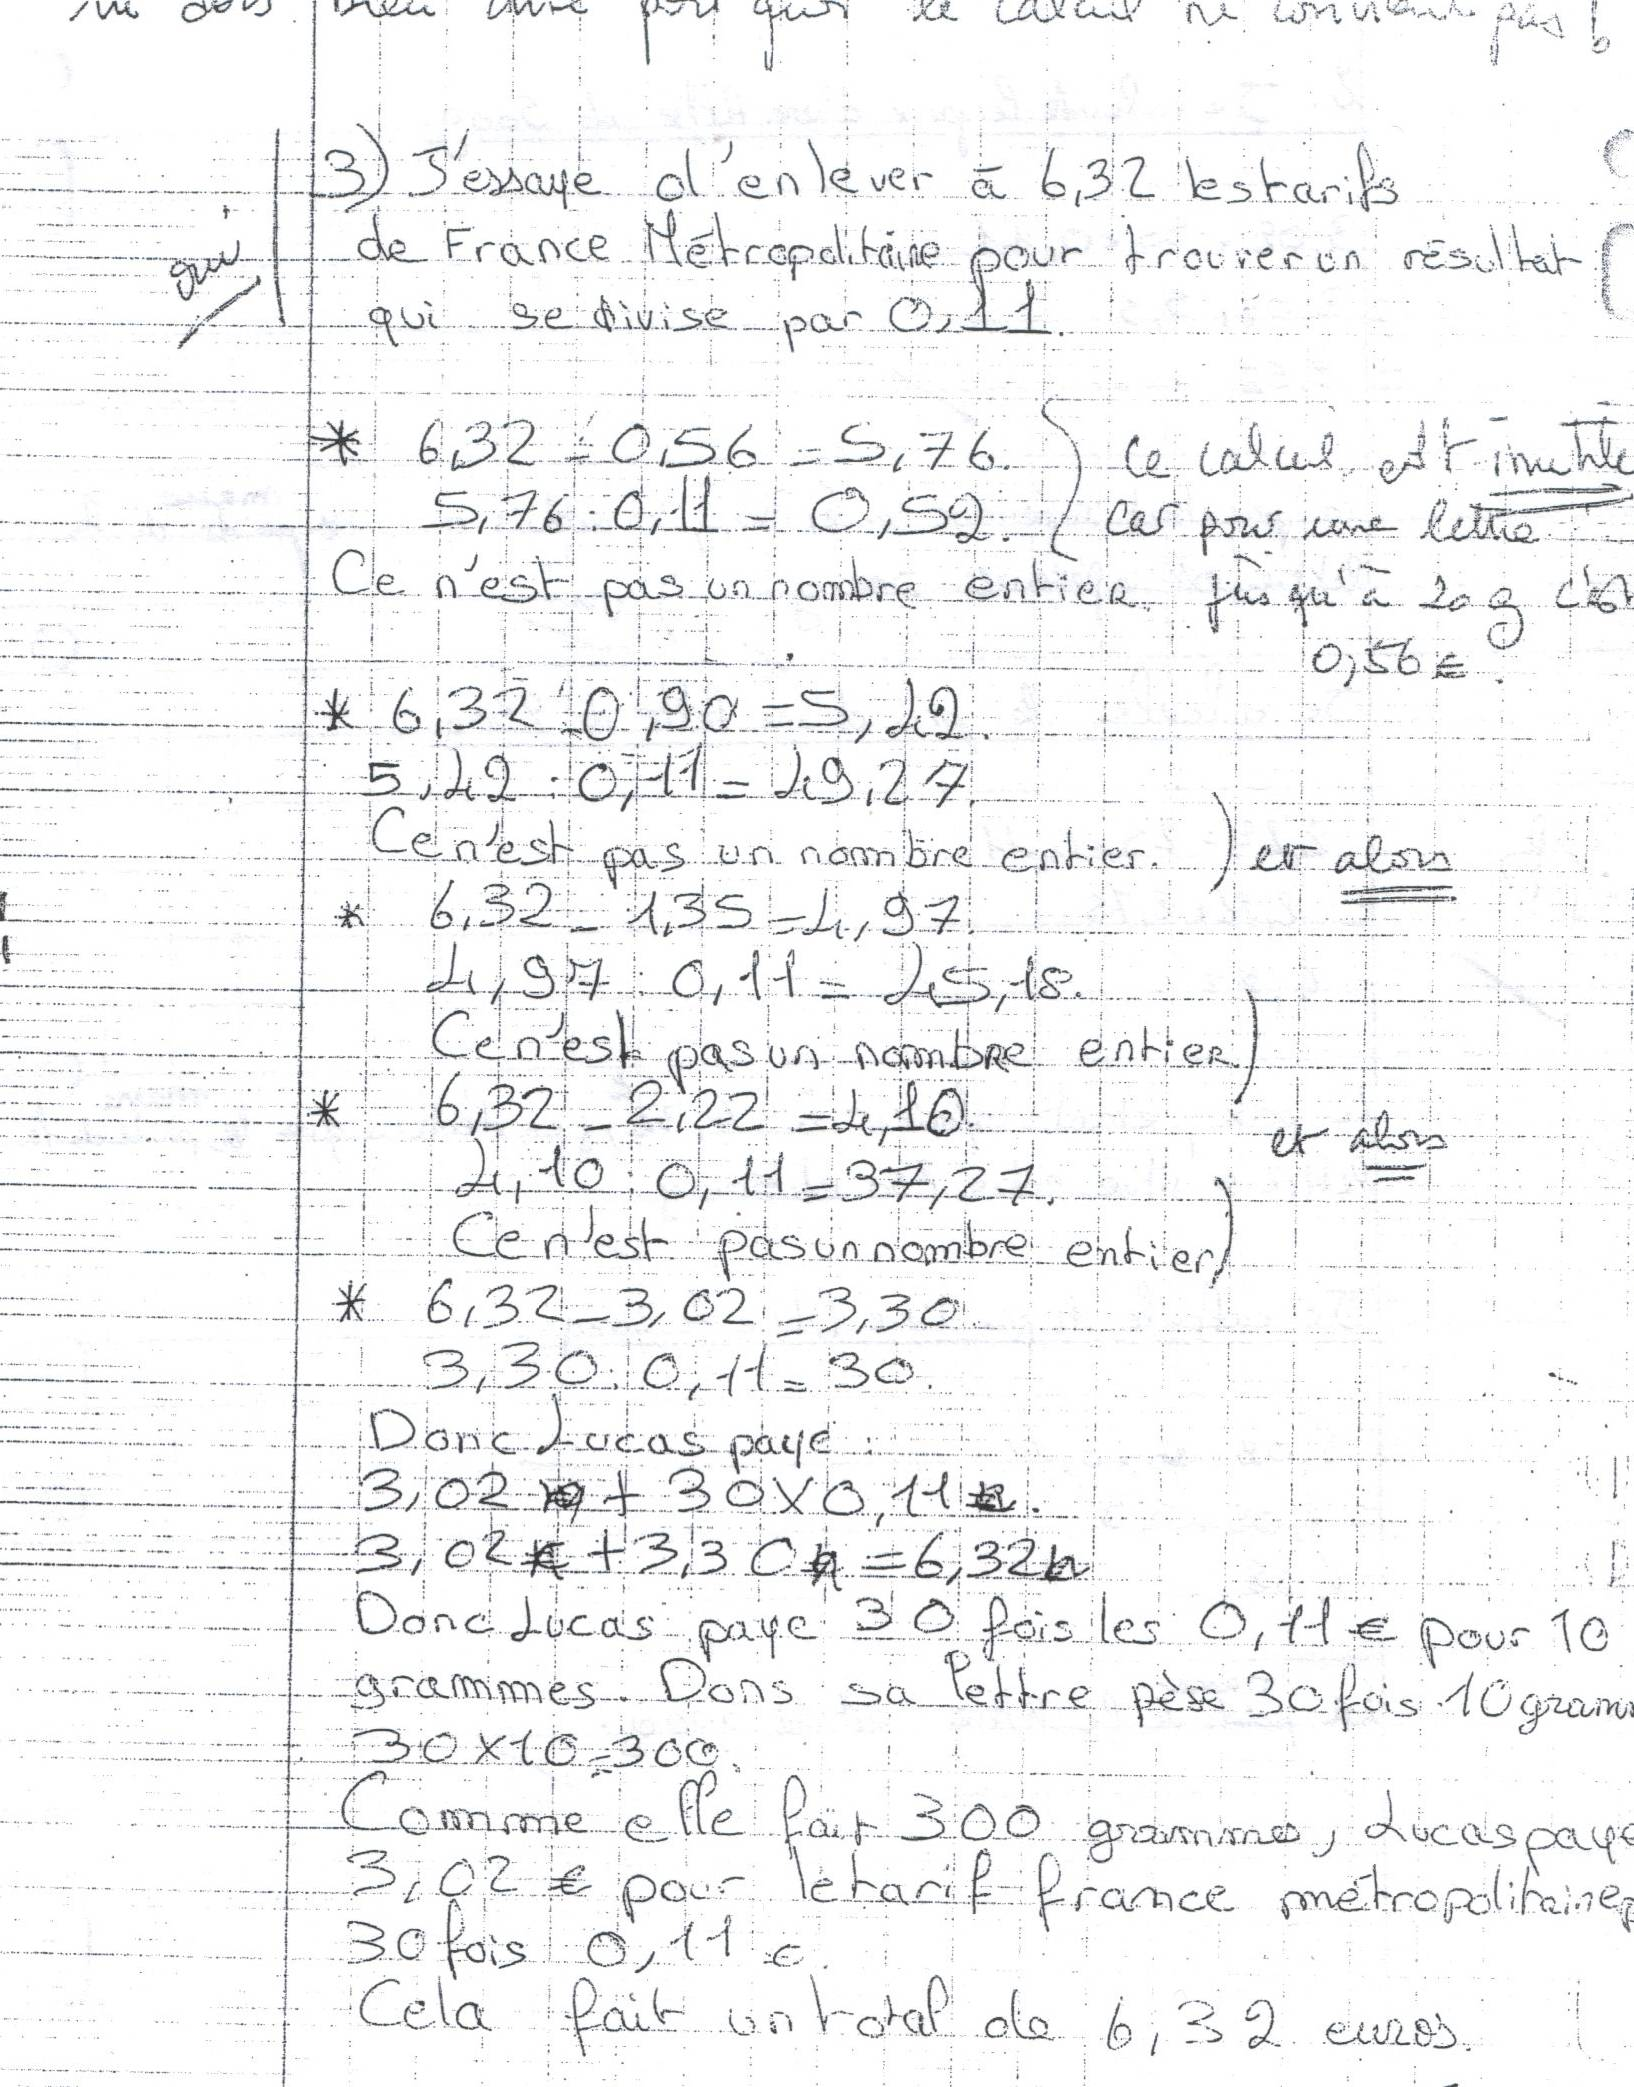 bien dire pourquoi le calcul ne convient pas !
3) J'essaye d'enlever à 6,32 les tarifs
de France Métropolitaine pour trouver un résultat
qui se divise par 0,11.
oui
* 6,32 - 0,56 = 5,76.
5,76 : 0,11 = 0,52.
Ce n'est pas un nombre entier.
Ce calcul est inutile
car pour une lettre
jusqu'à 20 g c'est
0,56 €.
* 6,32 - 0,90 = 5,42.
5,42 : 0,11 = 49,27.
Ce n'est pas un nombre entier. ) et alors
* 6,32 - 1,35 = 4,97.
4,97 : 0,11 = 45,18.
Ce n'est pas un nombre entier )
* 6,32 - 2,22 = 4,10.
et alors
4,10 : 0,11 = 37,27.
Ce n'est pas un nombre entier )
* 6,32 - 3,02 = 3,30.
3,30 : 0,11 = 30.
Donc Lucas paye :
3,02 € + 30 x 0,11 €.
3,02 € + 3,30 € = 6,32 €
Donc Lucas paye 30 fois les 0,11 € pour 10
grammes. Dons sa lettre pèse 30 fois 10 gramm
30 x 10 = 300.
Comme elle fait 300 grammes, Lucas paye
3,02 € pour le tarif france métropolitaine,
30 fois 0,11 €.
Cela fait un total de 6,32 euros.